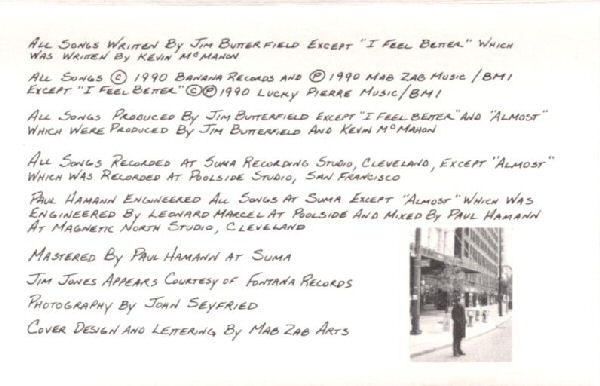 All Songs Written By Jim Butterfield Except "I Feel Better" Which
Was Written By Kevin McMahon
All Songs © 1990 Banana Records and ℗ 1990 Mab Zab Music/BMI
Except "I Feel Better" ©℗ 1990 Lucky Pierre Music/BMI
All Songs Produced By Jim Butterfield Except "I Feel Better" And "Almost"
Which Were Produced By Jim Butterfield And Kevin McMahon
All Songs Recorded At Suma Recording Studio, Cleveland, Except "Almost"
Which Was Recorded At Poolside Studio, San Francisco
Paul Hamann Engineered All Songs At Suma Except "Almost" Which Was
Engineered By Leonard Marcel At Poolside And Mixed By Paul Hamann
At Magnetic North Studio, Cleveland
Mastered By Paul Hamann At Suma
Jim Jones Appears Courtesy of Fontana Records
Photography By John Seyfried
Cover Design and Lettering By Mab Zab Arts